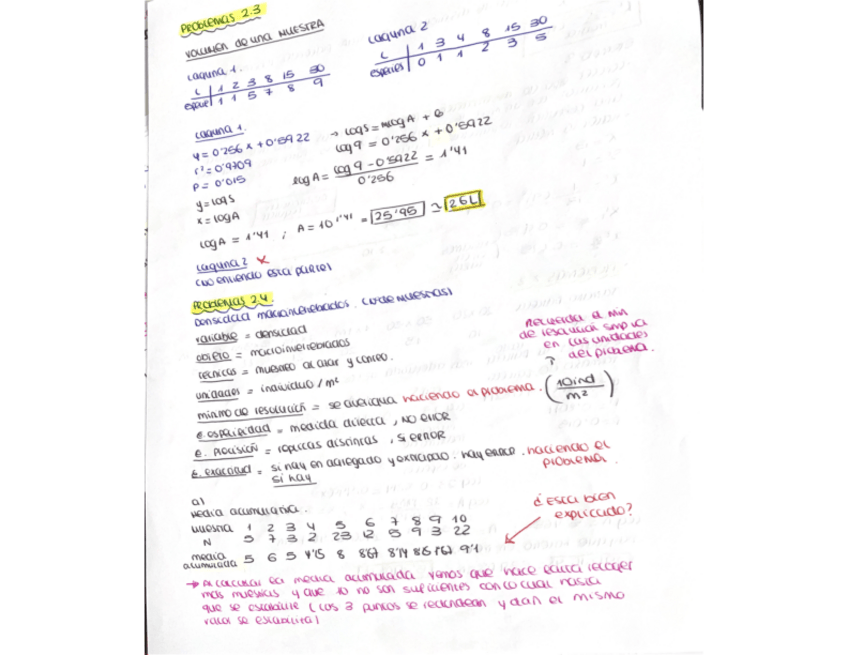 PROBLEMAS 2.3
VOLUMEN de una MUESTRA
Laguna 1.
L 1 2 3 8 15 30
especies 1 1 5 7 8 9
Laguna 2
L 1 3 4 8 15 30
especies 0 1 1 2 3 5
Laguna 1.
y = 0'256 x + 0'5922
r² = 0'9709
P = 0'015
y = log S
x = log A
→ log S = m log A + b
log 9 = 0'256 x + 0'5922
log A = log 9 - 0'5922 / 0'256 = 1'41
log A = 1'41 ; A = 10^1'41 = 25'95 ≃ 26L
Laguna 2 ✗
(no entiendo esta parte)
PROBLEMAS 2.4.
Densidad macroinvertebrados. (nº de muestras)
variable = densidad
objeto = macroinvertebrados
técnicas = muestreo al azar y conteo.
unidades = individuo / m²
mínimo de resolución = se averigua haciendo el problema. (10 ind / m²)
Recuerda el min
de resolución smp va
en las unidades
del problema.
?
E. especificidad = medida directa, NO error
E. Precisión = réplicas distintas, SI error
E. exactitud = si hay en agregado y anticipado. hay error. haciendo el problema.
si hay
a)
Media acumulativa.
muestra 1 2 3 4 5 6 7 8 9 10
N 5 7 3 2 23 12 5 9 3 22
media acumulada 5 6 5 4'25 8 8'67 8'14 8'6 7'67 9'1
¿Está bien
explicado?
→ Al calcular la media acumulada vemos que hace falta recoger
más muestras y que 10 no son suficientes con lo cual hasta
que se estabilice (los 3 puntos se redondean y dan el mismo
valor se estabiliza)